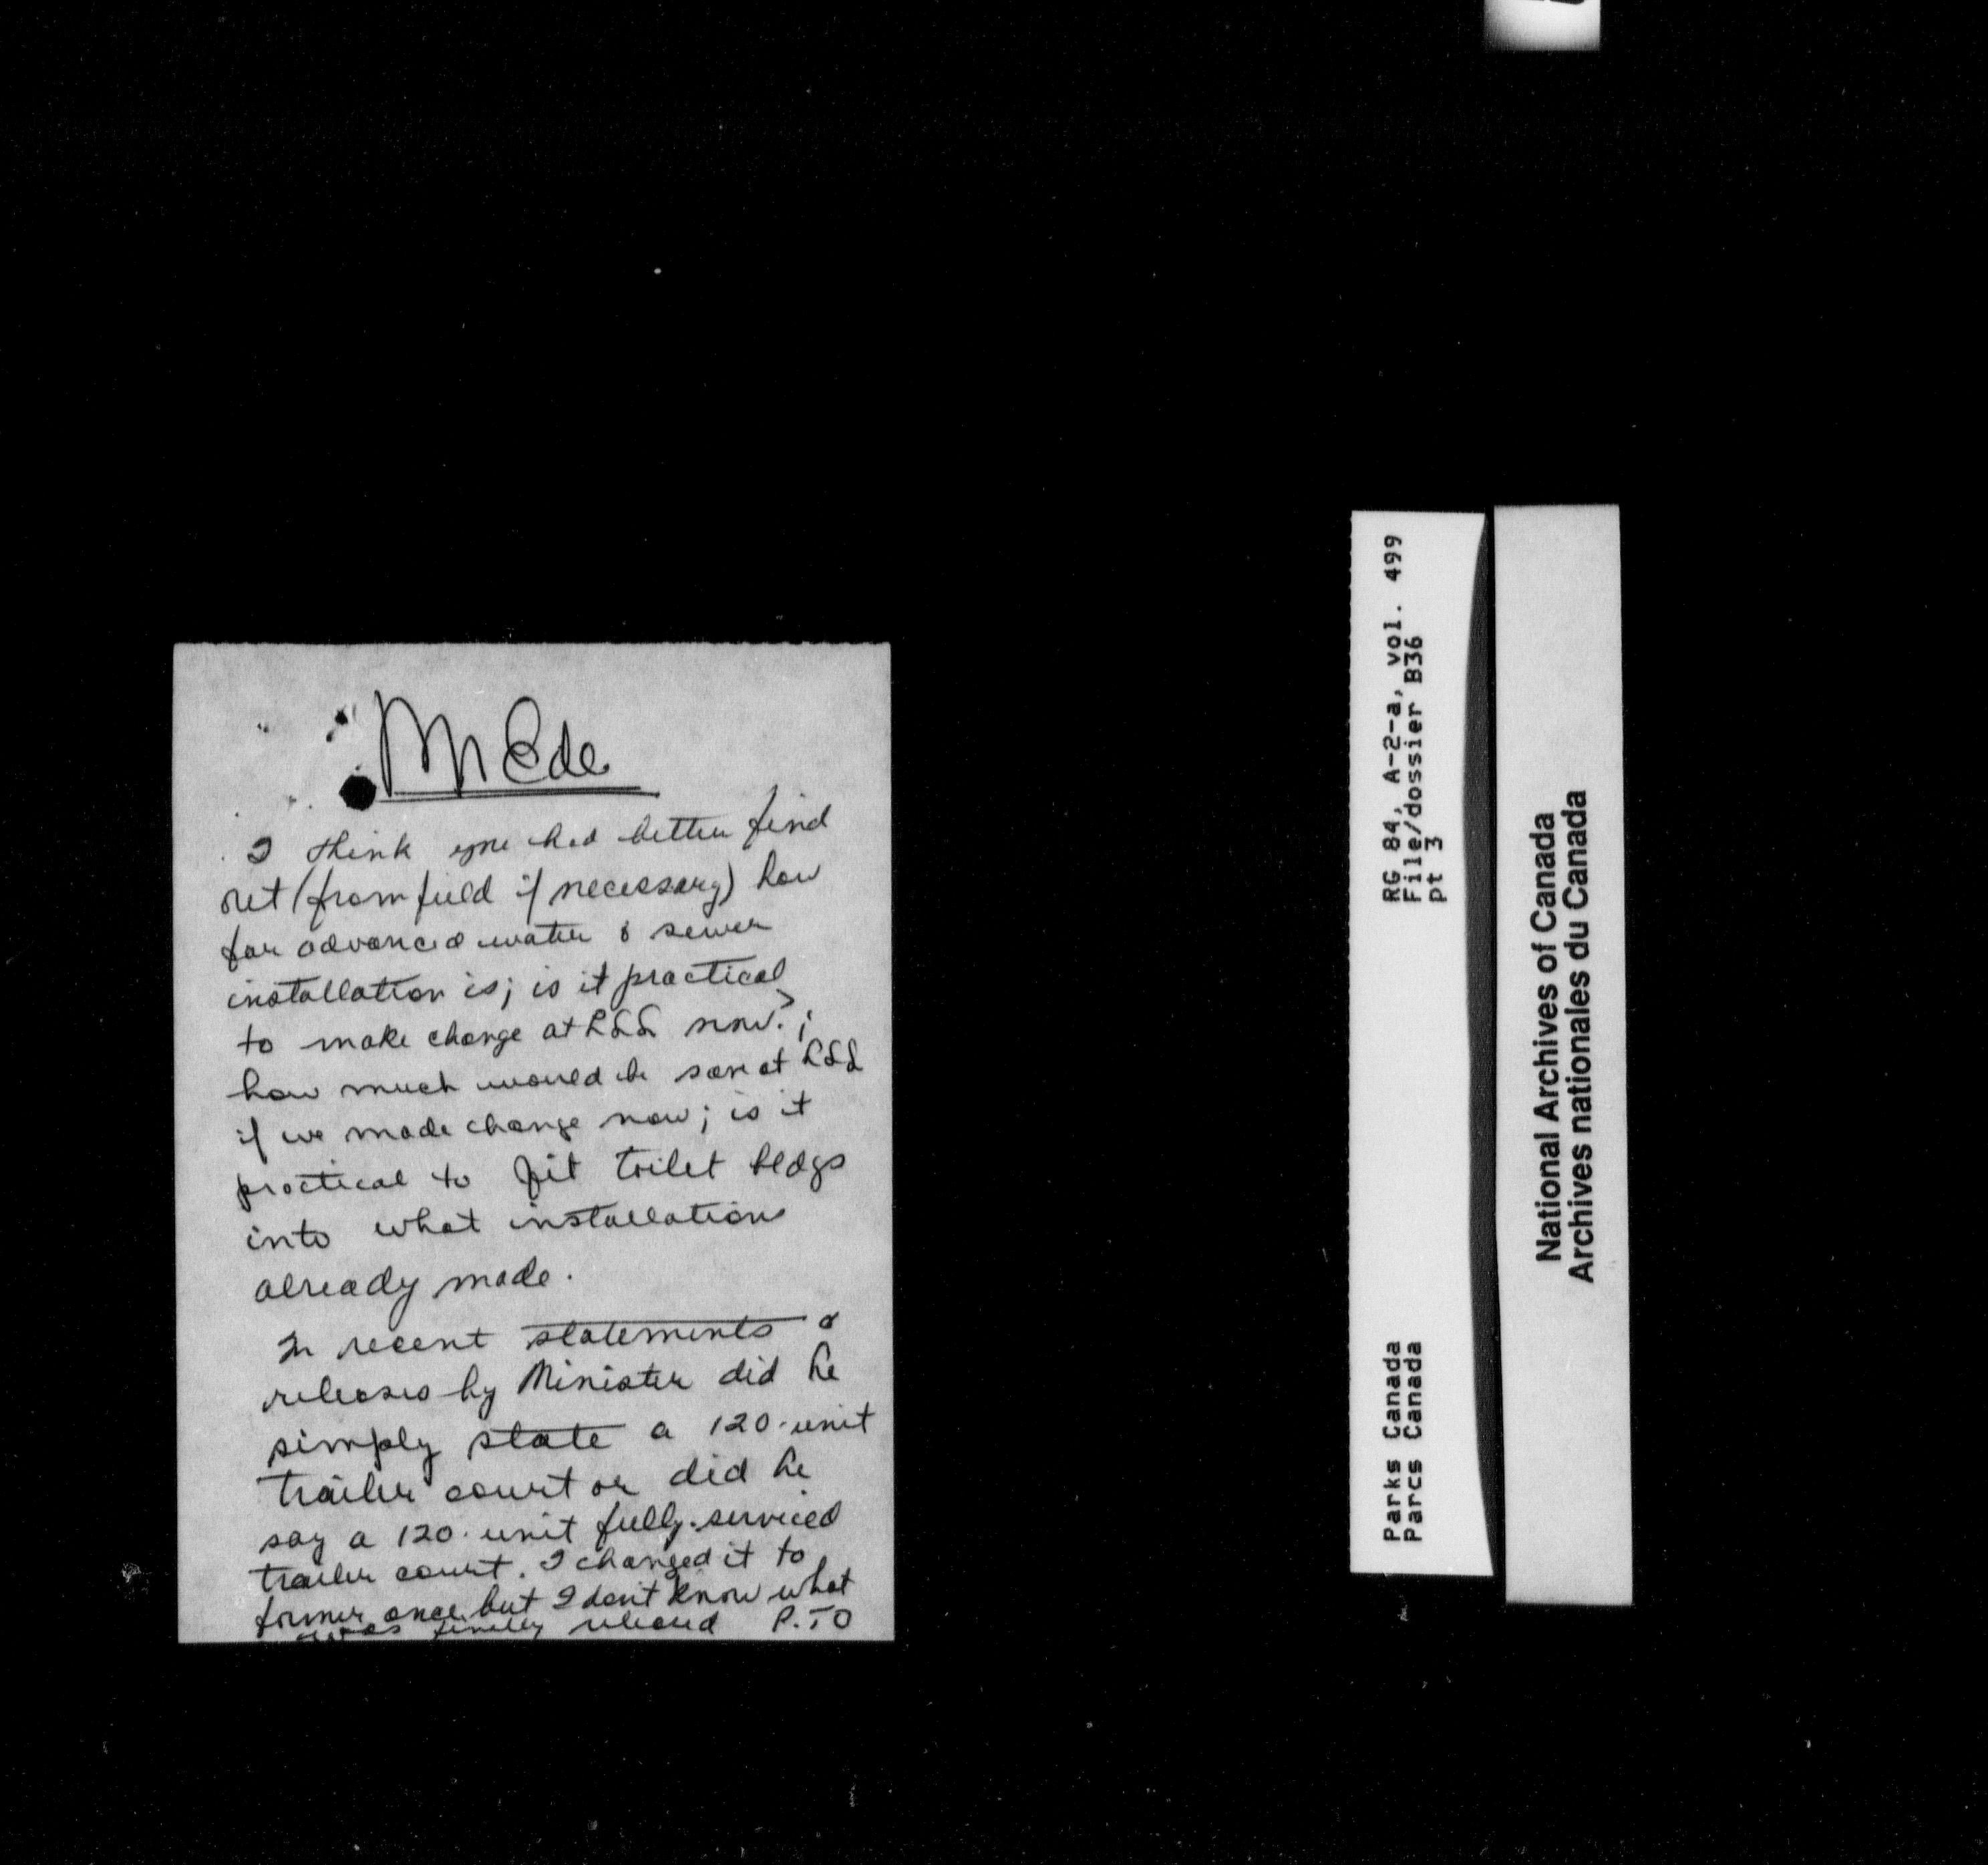 Mr Ede
I think you had better find
out (from field if necessary) how
far advanced water & sewer
installation is; is it practical
to make change at L&L now?;
how much would be save at L&L
if we made change now; is it
practical to fit toilet bldgs
into what installations
already made.
In recent statements &
releases by Minister did he
simply state a 120-unit
trailer court or did he
say a 120-unit fully-serviced
trailer court. I changed it to
former once but I don't know what
was finally released P.T.O
RG 84, A-2-a, vol. 499
File/dossier B36
pt 3
Parks Canada
Parcs Canada
National Archives of Canada
Archives nationales du Canada